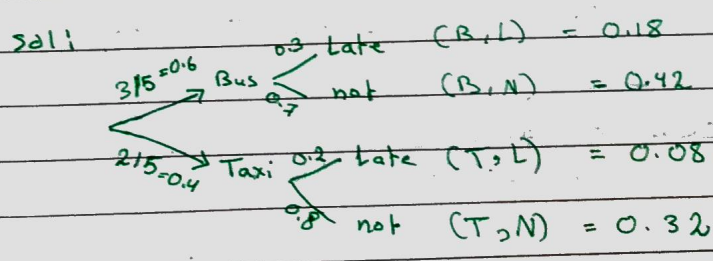 Sol:
3/5=0.6 Bus 0.3 Late (B,L) = 0.18
0.7 not (B,N) = 0.42
2/5=0.4 Taxi 0.2 Late (T,L) = 0.08
0.8 not (T,N) = 0.32